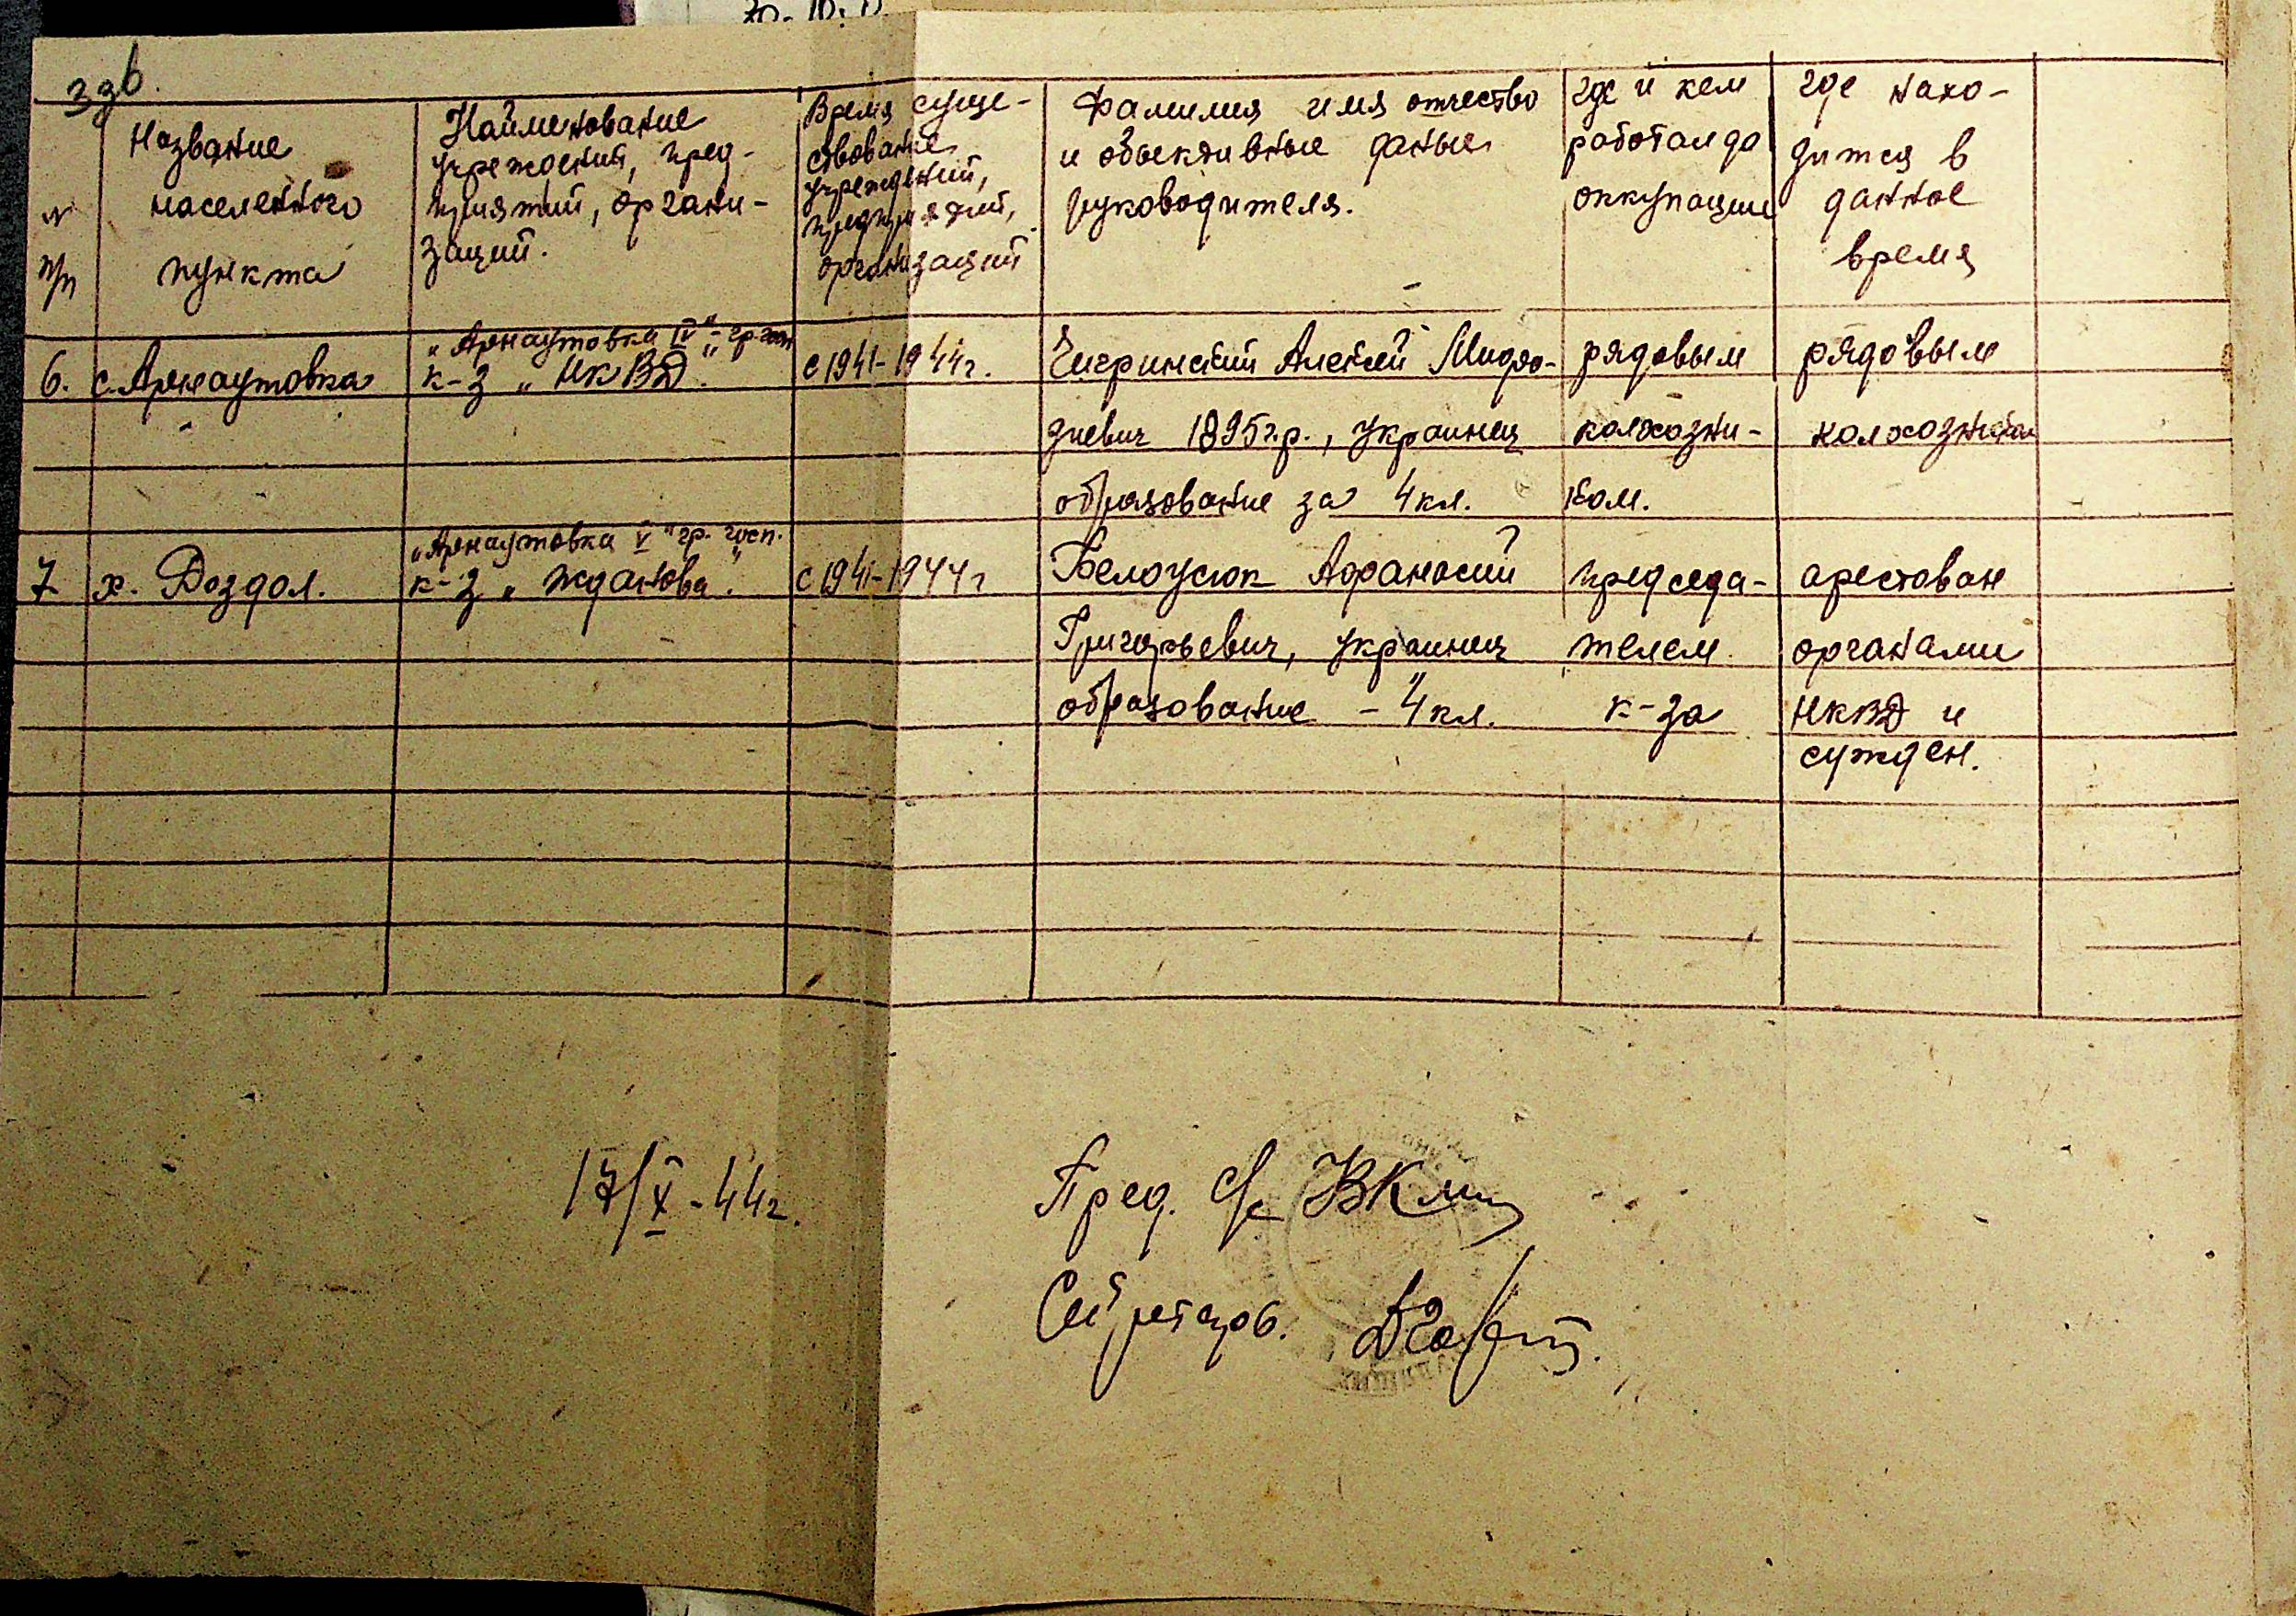 ззв.
№ п/п
Название
населенного
пункта
Наименование
учреждений, пред-
приятий, органи-
заций.
Время суще-
ствование
учреждений,
предприятий,
организаций
Фамилия имя отчество
и объективные даные
руководителя.
где и кем
работал до
оккупации
где нахо-
дится в
данное
время
6. с. Арнаутовка
„Арнаутовка IV" гр. госп
к-з „НКВД".
с 1941-1944г.
Чигринский Алексей
1895г.р., украинец
образование за 4кл.
рядовым
колхозни-
ком.
рядовым
колхозником
7 х. Роздол.
„Арнаутовка V" гр. госп.
к-з „Жданова".
с 1941-1944г
Белоусюк Афанасий
Григорьевич, украинец
образование - 4кл.
председа-
телем
к-за
арестован
органами
НКВД и
сужден.
17/X-44г.
Пред. с/с
Секретарь.